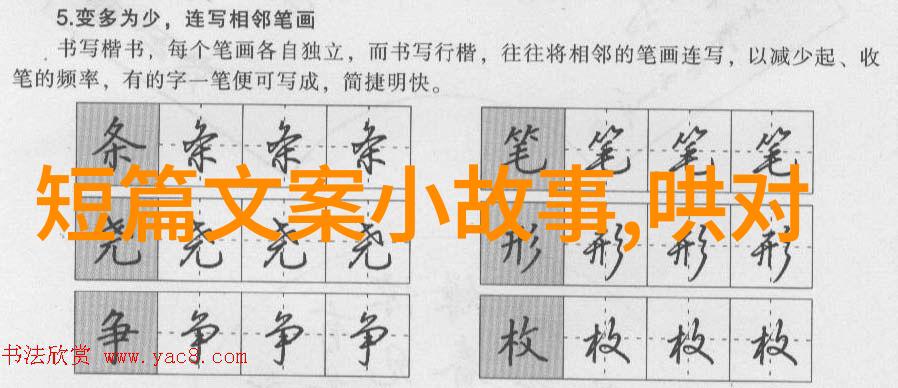 5.变多为少，连写相邻笔画
书写楷书，每个笔画各自独立，而书写行楷，往往将相邻的笔画连写，以减少起、收
笔的频率，有的字一笔便可写成，简捷明快。
条 条 条 条 笔 笔 笔 笔
短篇文案小故事,哄对
尧 尧 尧 尧 形 形 形 形
争 争 争 争 枚 枚 枚 枚
书法欣赏 www.yac8.com